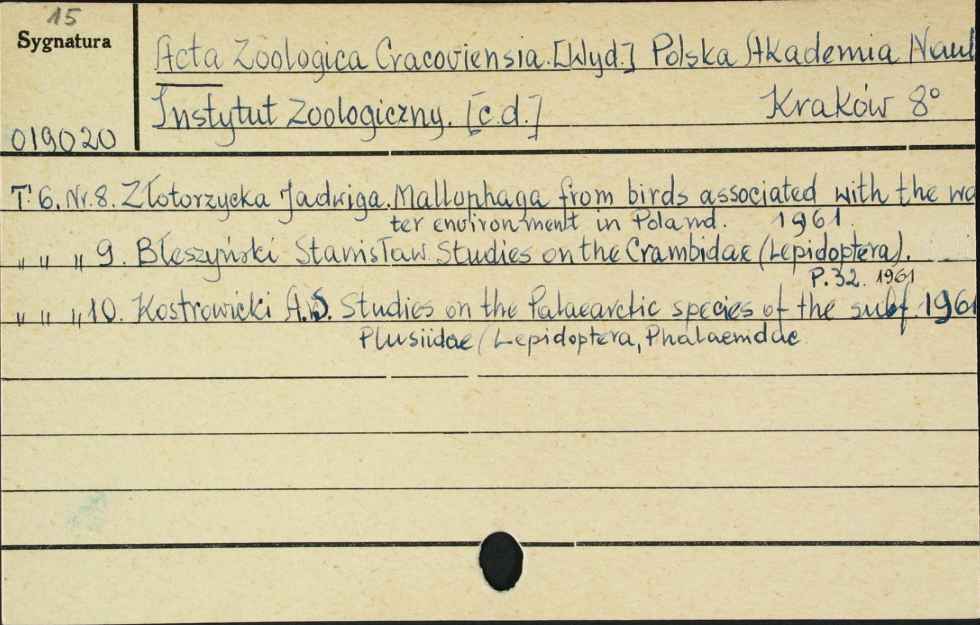 15
Sygnatura
Acta Zoologica Cracoviensia. [Wyd.] Polska Akademia Nauk
Instytut Zoologiczny. [c.d.] Kraków 8°
019020
T. 6. Nr. 8. Złotorzycka Jadwiga. Mallophaga from birds associated with the wa
ter environment in Poland. 1961.
" " " 9. Błeszyński Stanisław Studies on the Crambidae (Lepidoptera).
P. 32. 1961
" " " 10. Kostrowicki A.S. Studies on the Palaearctic species of the subf. 1961
Plusiidae (Lepidoptera, Phalaenidae